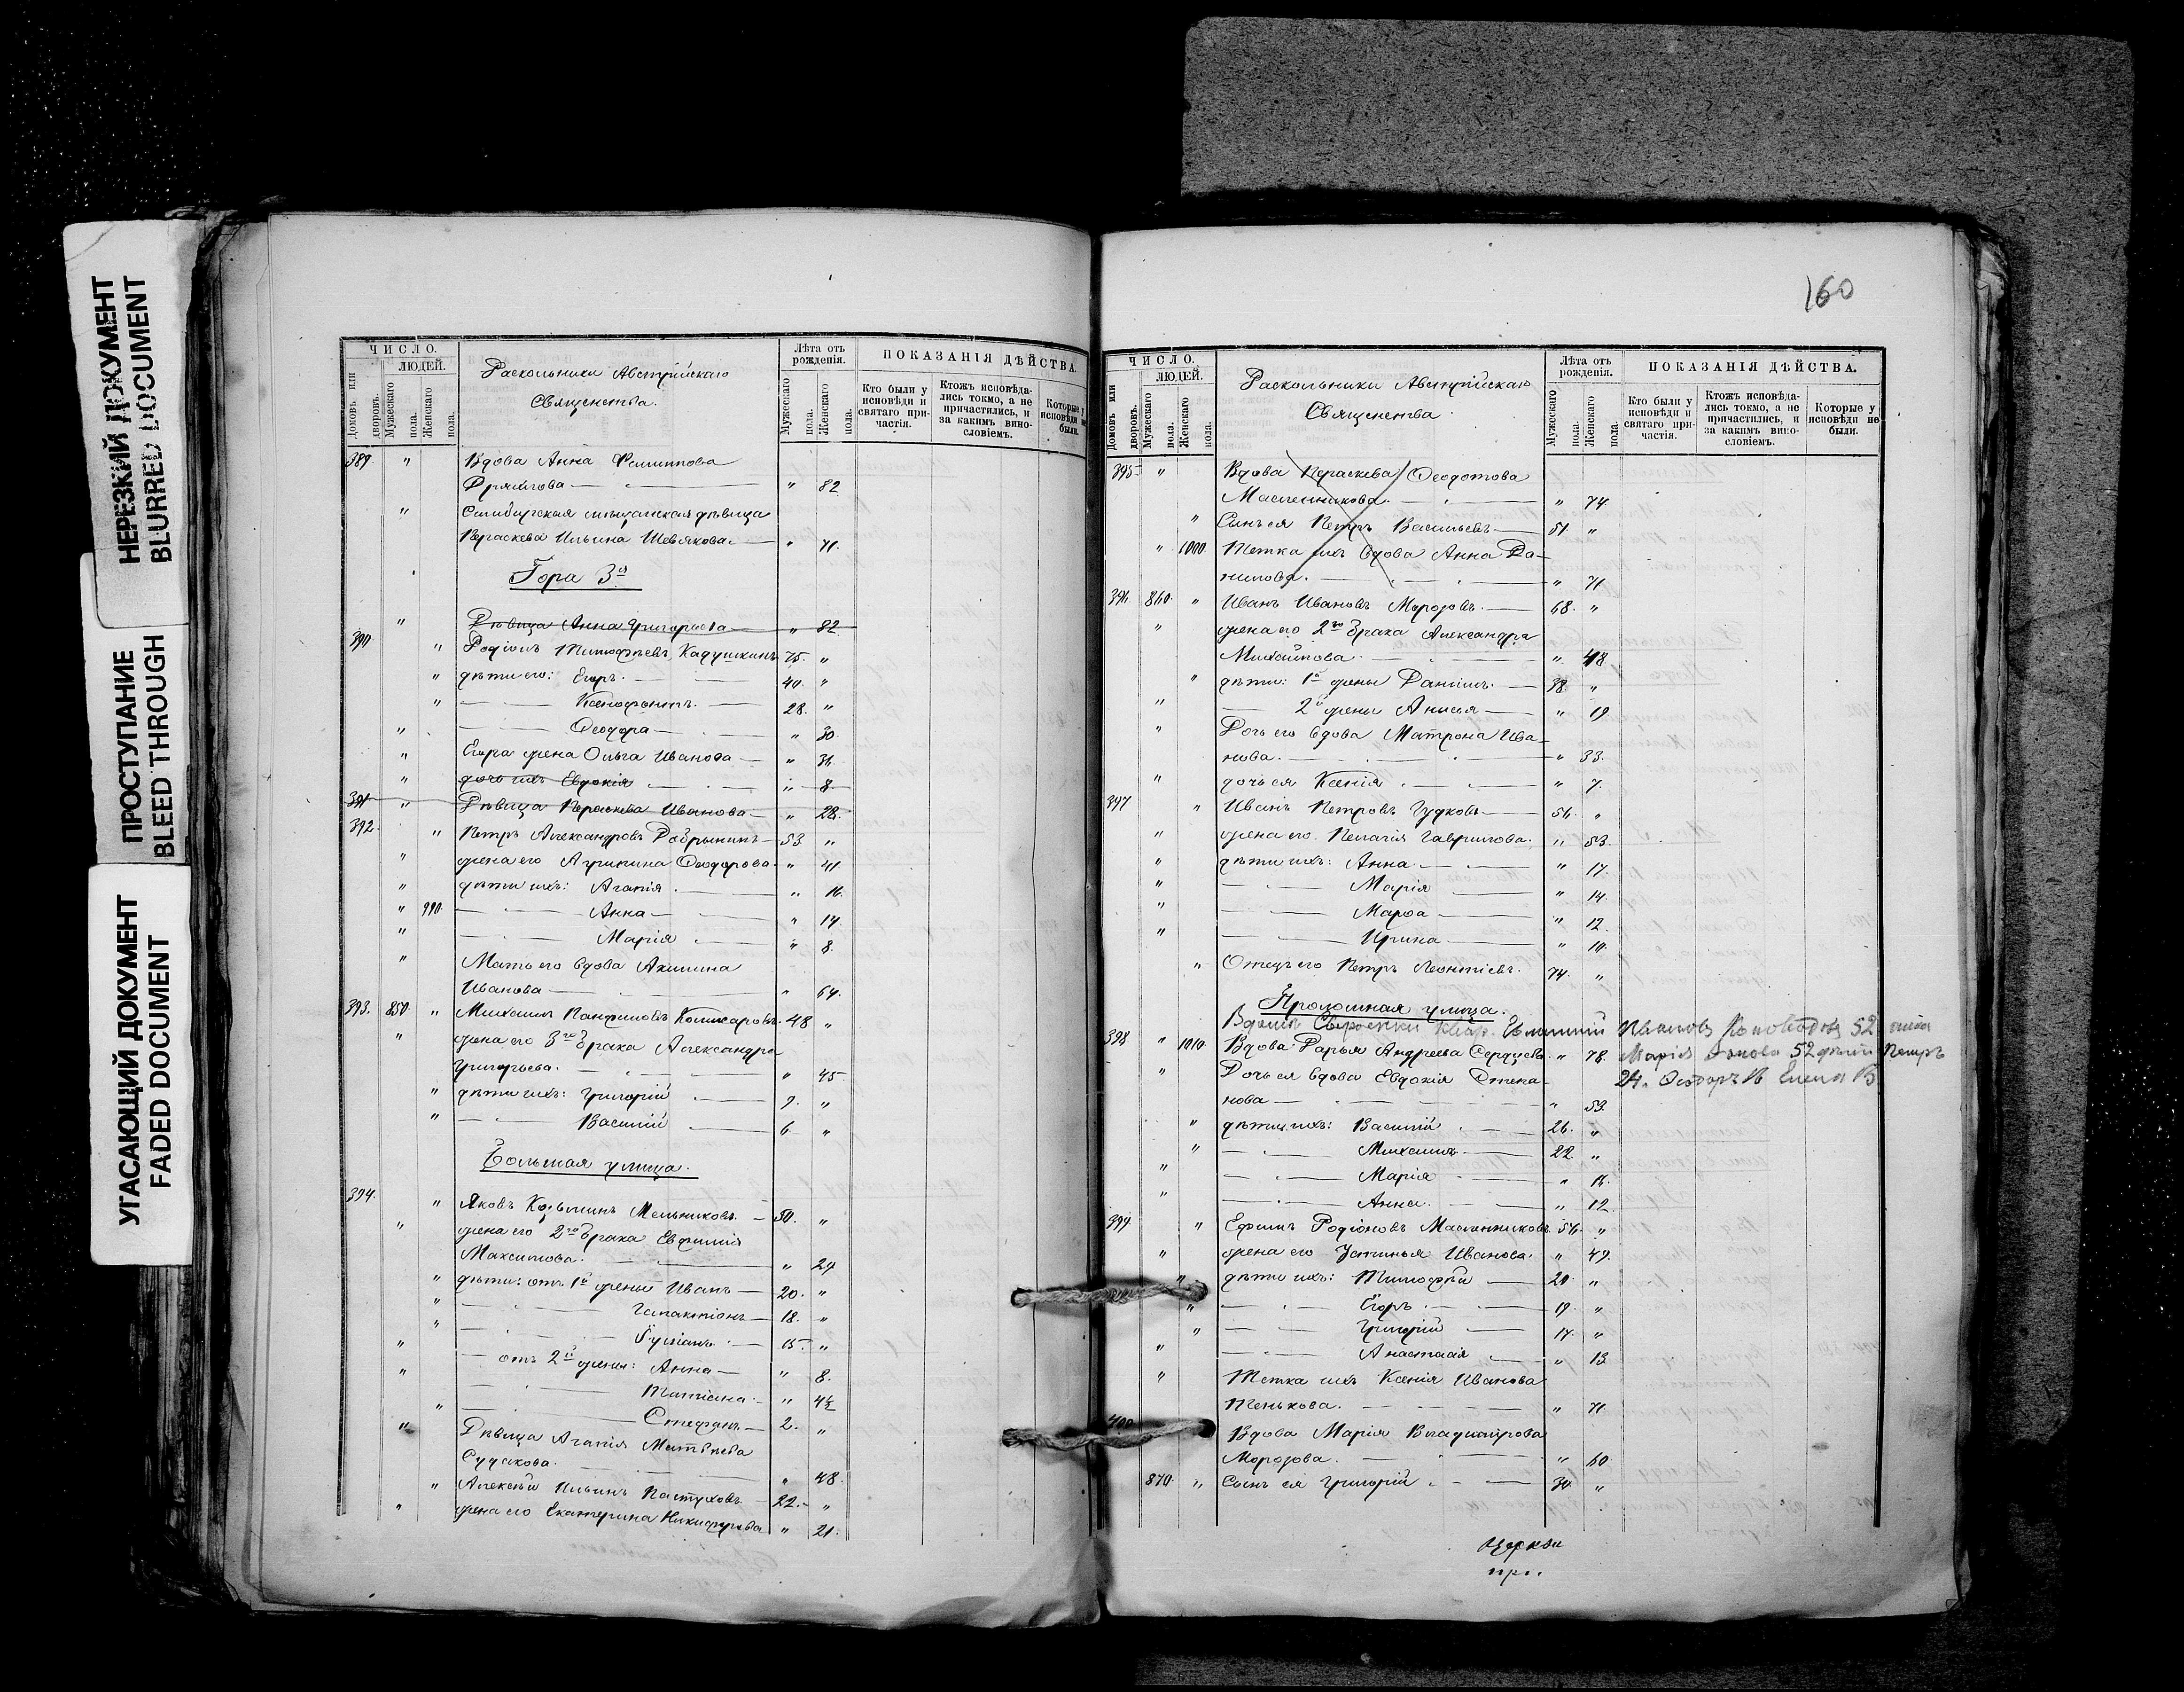 НЕРЕЗКИЙ ДОКУМЕНТ
BLURRED DOCUMENT
ПРОСТУПАНИЕ
BLEED THROUGH
УГАСАЮЩИЙ ДОКУМЕНТ
FADED DOCUMENT
ЧИСЛО.
ЛЮДЕЙ.
Домовъ или дворовъ.
Мужескаго пола.
Женскаго пола.
Раскольники Австрійскаго
Священства.
Лѣта отъ рожденія.
Мужескаго пола.
Женскаго пола.
ПОКАЗАНІЯ ДѢЙСТВА.
Кто были у исповѣди и святаго при-частія.
Ктожъ исповѣда-лись токмо, а не причастились, и за какимъ вино-словіемъ.
Которые у исповѣди не были.
389. " Вдова Анна Филиппова
— " 82
" Симбирская мѣщанская дѣвица
Параскева Ильина Шевякова. — " 71.
Гора 3я
" Дѣвица Анна Григорьева — " 82.
390. " Родіонъ Тимофѣевъ Кадушкинъ 75. "
" дѣти его: Егоръ. — 40. "
" — Ксенофонтъ. — 28. "
" — Ѳеодора — " 30.
" Егора жена Ольга Иванова — " 36
" дочь ихъ Евдокія — " 8
391 " Дѣвица Параскева Иванова — " 28.
392. " Петръ Александровъ Добрынинъ — 53. "
" жена его Агрипина Ѳеодорова. " 41
" дѣти ихъ: Агапія. — " 16.
" 990. — Анна — " 14.
" — Марія — " 8.
" Мать его вдова Акилина
Иванова — " 64.
393. 850. " Михаилъ Панфиловъ Комисаровъ. 48 "
" жена его 3го брака Александра
Григорьева. — " 45
" дѣти ихъ: Григорій — 9. "
" — Василій — 6 "
Большая улица.
394. " Яковъ Козьминъ Мельниковъ. — 50. "
" жена его 2го брака Евфимія
Максимова. — " 29
" дѣти: отъ 1й жены Иванъ — 20. "
" — Галактіонъ — 18. "
" — Гуріанъ — 15. "
" — отъ 2й жены: Анна — " 8.
" — Татіана — " 4½
" — Стефанъ — 2. "
" Дѣвица Агапія Матвѣева
Судакова. — " 48.
" Алексѣй Ильинъ Пастуховъ 22. "
" жена его Екатерина Никифорова " 21.
160
ЧИСЛО.
ЛЮДЕЙ.
Домовъ или дворовъ.
Мужескаго пола.
Женскаго пола.
Раскольники Австрійскаго
Священства
Лѣта отъ рожденія.
Мужескаго пола.
Женскаго пола.
ПОКАЗАНІЯ ДѢЙСТВА.
Кто были у исповѣди и святаго при-частія.
Ктожъ исповѣда-лись токмо, а не причастились, и за какимъ вино-словіемъ.
Которые у исповѣди не были.
395 " Вдова Параскева Ѳеодотова
Масленникова. — " 74.
" Сынъ ея Петръ Васильевъ — 51 "
" 1000. Тетка ихъ вдова Анна Да-
нилова. — " 71
396. 860. " Иванъ Ивановъ Морозовъ. — 68. "
" жена его 2го брака Александра
Михайлова. — " 48
" дѣти: 1й жены Даніилъ. — 38. "
" — 2й жены Анисья — " 19
" Дочь его вдова Матрона Ива-
нова. — " 33.
" дочь ея Ксенія. — " 7.
397 " Иванъ Петровъ Гудковъ — 56. "
" жена его Пелагія Гаврилова. " 53.
" дѣти ихъ: Анна. — " 17.
" — Марія — " 14.
" — Марѳа — " 12.
" — Ирина — " 10.
" Отецъ его Петръ Леонтіевъ. 74. "
Проломная улица.
Евлампій Ивановъ 52
398 " 1010. Вдова Дарья Андреева " 78. Марія 52 дѣти Петръ
" Дочь ея вдова Евдокія Степа- 24. Ѳедоръ 16 Елена 13
нова — " 53.
" дѣти ихъ: Василій. — 26. "
" — Михаилъ — 22. "
" — Марія — " 16.
" — Анна. — " 12
399 " Ефимъ Родіоновъ Масленниковъ 56. "
" жена его Устинья Иванова. " 49.
" дѣти ихъ: Тимофѣй — 20. "
" — Егоръ. — 19. "
" — Григорій — 17. "
" — Анастасія — " 13
" Тетка ихъ Ксенія Иванова
Тенькова. — " 71.
400 Вдова Марія Владимірова
Морозова. — " 60
870. " Сынъ ея Григорій. — 30. "